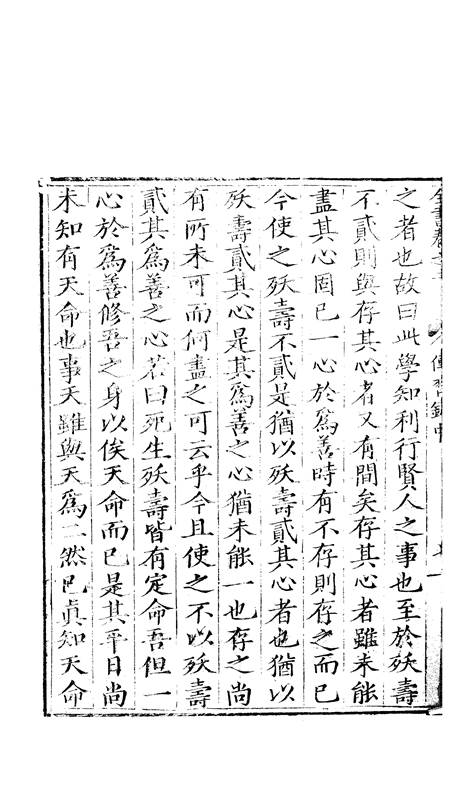 之者也故曰此學知利行賢人之事也至於殀壽
不貳則與存其心者又有間矣存其心者雖未能
盡其心固已一心於爲善時有不存則存之而已
今使之殀壽不貳是猶以殀壽貳其心者也猶以
殀壽貳其心是其爲善之心猶未能一也存之尚
有所未可而何盡之可云乎今且使之不以殀壽
貳其爲善之心若曰死生殀壽皆有定命吾但一
心於爲善修吾之身以俟天命而已是其平日尚
未知有天命也事天雖與天爲二然已真知天命